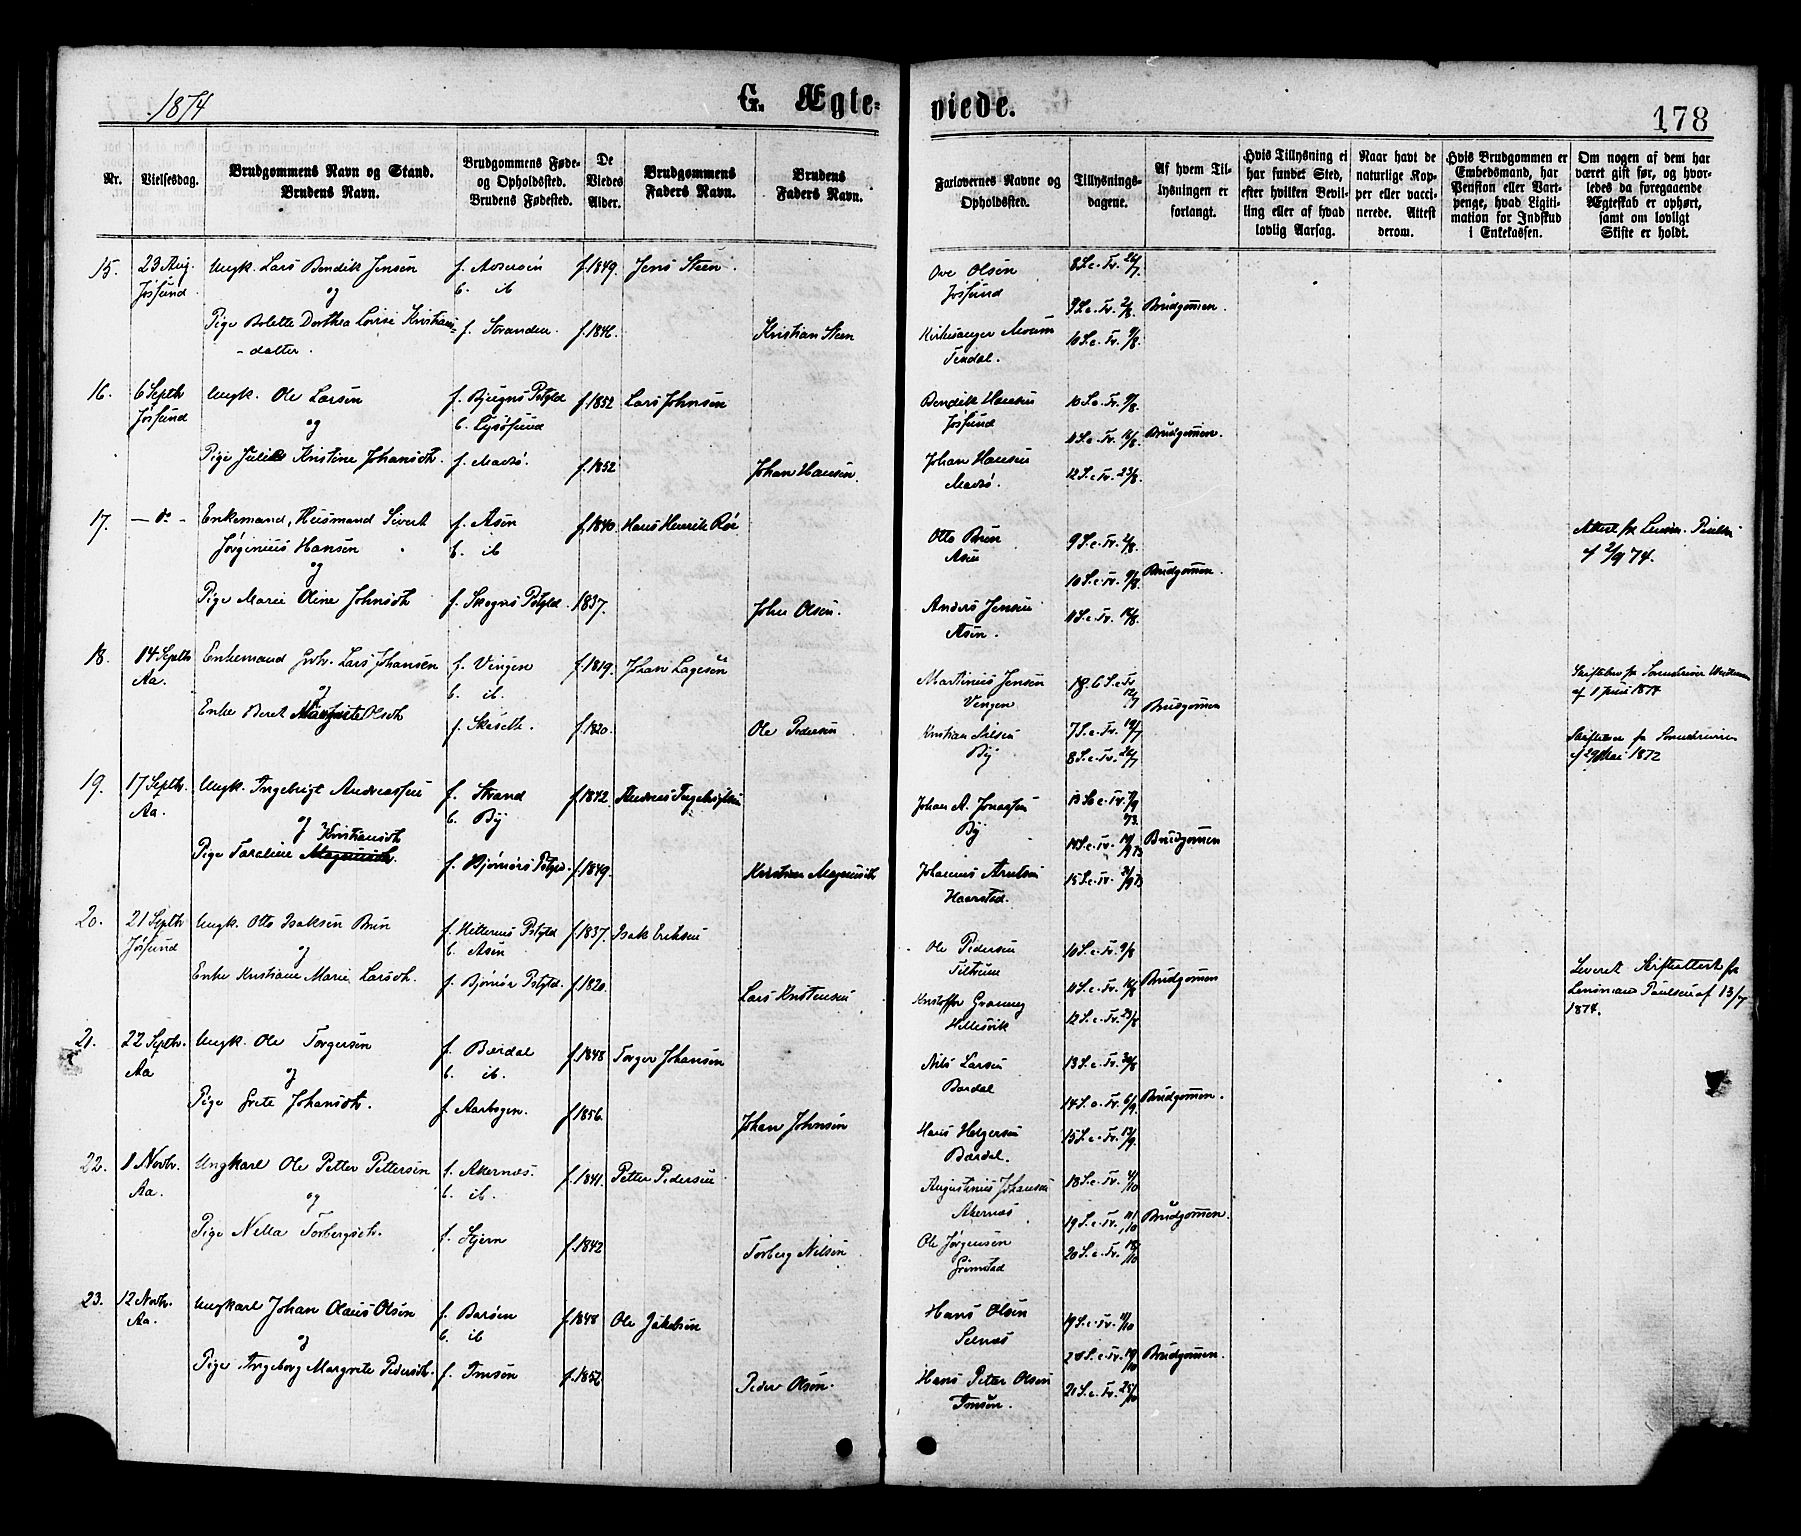 1874
G. Ægte-
viede.
178
Nr.
Vielsesdag.
Brudgommens Navn og Stand.
Brudens Navn.
Brudgommens Føde-
og Opholdssted.
Brudens Fødested.
De
Viedes
Alder.
Brudgommens
Faders Navn.
Brudens
Faders Navn.
Forlovernes Navne og
Opholdssted.
Tillysnings-
dagene.
Af hvem Til-
lysningen er
forlangt.
Hvis Tillysning ei
har fundet Sted,
efter hvilken Bevil-
ling eller af hvad
lovlig Aarsag.
Naar havt de
naturlige Kop-
per eller vacci-
nerede. Attest
derom.
Hvis Brudgommen er
Embedsmand, har
Pension eller Vart-
penge, hvad Ligiti-
mation for Indskud
i Enkekassen.
Om nogen af dem har
været gift før, og hvor-
ledes da foregaaende
Ægteskab er ophørt,
samt om lovligt
Skifte er holdt.
15. 23 Aug. Ungk. Lars Bendik Jensen f. Adsersøn f. 1849. Jens Steen. Ove Olsen 8 S. e. Tr. 26/7
Jøssund og b. ib Jøssund 9 S. e. Tr. 2/8 Brudgommen.
Pige Bolette Dorthea Lovise Kristians- f. Stranden. f. 1846. Kristian Steen Kirkesanger 10 S. e. Tr. 9/8.
- datter.
16. 6 Septb Ungk. Ole Larsen f. Bjugns Pstgld f. 1852 Lars Johnsen Bendik Hansen 10 S. e. Tr. 9/8.
Jøssund og b. Lysøsund Jøssund 11 S. e. Tr. 16/8 Brudgommen.
Pige Kristine Johansdt. f. Madsø. f. 1852 Johan Hansen. Johan Hansen 12 S. e. Tr. 23/8.
Madsø.
17. - do - Enkemand, Husmand Sivert f. Asen f. 1840. Hans Henrik Rør Otto Brun 9 S. e. Tr. 2/8. Attest fr Lensm. Paulsen
Jørginius Hansen b. ib Asen af 2/9 74.
og 10 S. e. Tr. 9/8 Brudgommen.
Pige Marie Oline Johnsdt f. Skogns Pstgld. 1837. John Olsen. Anders Jensen 11 S. e. Tr. 16/8.
Asen.
18. 14 Septb Enkemand Lars Johansen f. Vingen f. 1819. Johan Lagesen Martinus Jensen 6 S. e. Tr. 12/7
Aa. og b. ib. Vingen Brudgommen af 1 Juni 1874
Enke Beret Margrete Olsdt f. f. 1820. Ole Pedersen Kristian 7 S. e. Tr. 19/7
By 8 S. e. Tr. 26/7 af 29 Mai 1872
19. 17 Septb. Ungk. Ingebrigt Andreassen f. Strand f. 1842. Andreas Ingebrigtsen Johan A. Jonassen 13 S. e. Tr. 73.
Aa. og b. By By 14 S. e. Tr. Brudgommen
Kristiansdt
Pige Magnusdt. f. Bjørnørs Pstgld. f. 1849. Kristian Johannes Arntsen 15 S. e. Tr.
Haarstad.
20. 21 Septb Ungk. Otto Isaksen Brun f. Hitterns Pstgld f. 1837. Isak Eriksen Ole Pedersen 10 S. e. Tr. 9/8
Jøssund og b. Asen
Enke Kristiane Marie Larsdt. f. Bjørnør Pstgld. f. 1820. Lars Kristensen 11 S. e. Tr. 16/8 Brudgommen Leveret Skifteattest fr
Hellesvik 12 S. e. Tr. 23/8 Lensmand Paulsen af 13/7
1874.
21. 22 Septb. Ungk. Ole Torgersen f. Bærdal f. 1848 Torger Johansen Nils Larsen 13 S. e. Tr. 30/8
Aa og b. ib. Bærdal 14 S. e. Tr. 6/9. Brudgommen.
Pige Grete Johansdt. f. Aarbogen. f. 1856. Johan Johnsen Hans Helgersen 15 S. e. Tr. 13/9.
Bærdal.
22. 1 Novb. Ungkarl Ole Petter Pettersen f. Akernæs. f. 1841. Petter Pedersen Augustinus Johansen 18 S. e. Tr. 4/10
Aa. og b. ib. Akernæs 19 S. e. Tr. 11/10 Brudgommen.
Pige Nella Torbergsdt. f. Stjern f. 1842 Torberg Nilsen Ole Jørgensen 20 S. e. Tr. 18/10
Grimstad
23. 12 Novb. Ungkarl Johan Olaus Olsen f. Barøen f. 1848 Ole Jakobsen Hans Olsen 19 S. e. Tr. 11/10
Aa. og b. ib Selnæs 20 S. e. Tr. Brudgommen.
Pige Ingeborg Margrete Pedersdt. f. Imsen f. 1852 Peder Olsen. Hans Peter Olsen 21 S. e. Tr. 25/10
Imsen.